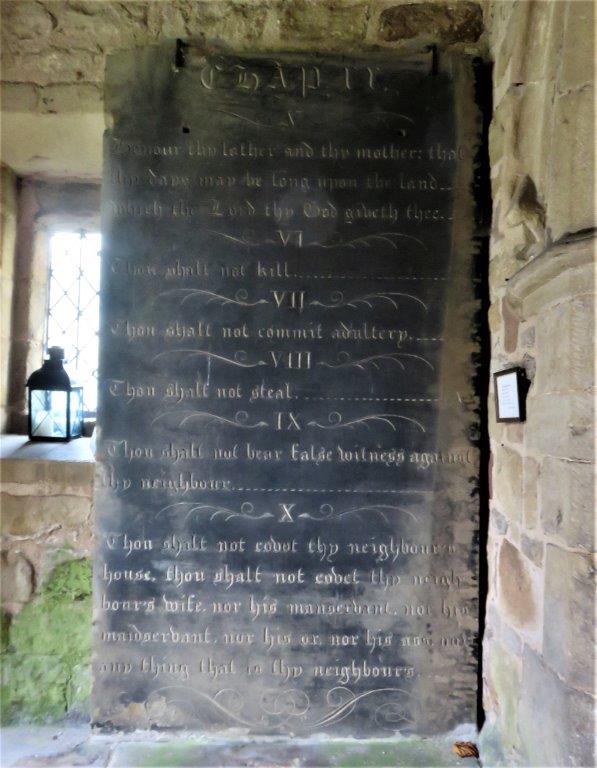 CHAP. 
V
Honour thy father and thy mother: that
thy days may be long upon the land
which the Lord thy God giveth thee.
VI
Thou shalt not kill.
VII
Thou shalt not commit adultery.
VIII
Thou shalt not steal.
IX
Thou shalt not bear false witness against
thy neighbour.
X
Thou shalt not covet thy neighbour's
house, thou shalt not covet thy neigh
bour's wife, nor his manservant, nor his
maidservant, nor his ox, nor his ass, nor
any thing that is thy neighbour's.